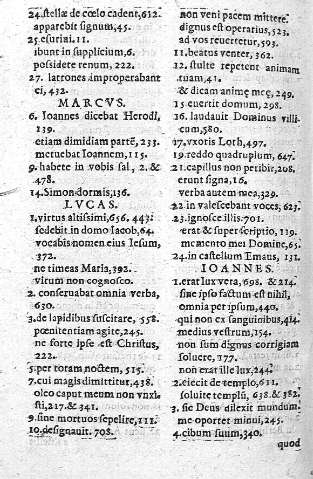 24. stellæ de cœlo cadent, 612.
apparebit signum, 45.
25. esuriui. 11.
ibunt in supplicium, 6.
possidete renum, 222.
27. latrones improperabant
ei, 432.
MARCVS.
6. Ioannes dicebat Herodi,
139.
etiam dimidiam partẽ, 233.
metuebat Ioannem, 115.
9. habete in vobis sal, 2. &
478.
14. Simon dormis, 136.
LVCAS.
1. virtus altissimi, 656. 443.
sedebit in domo Iacob, 64.
vocabis nomen eius Iesum,
372.
ne timeas Maria, 392.
virum non cognosco.
2. conseruabat omnia verba,
630.
3. de lapidibus suscitare, 558.
pœnitentiam agite, 245.
ne forte ipse est Christus,
222.
5. per totam noctem, 515.
7. cui magis dimittitur, 438.
oleo caput meum non vnxi
sti, 217. & 341.
9. sine mortuos sepelire, 111.
10. designauit. 708.
non veni pacem mittere.
dignus est operarius, 523.
ad vos reuertetur, 593.
11. beatus venter, 362.
12. stulte repetent animam
tuam, 41.
& dicam animę meę, 249.
15. euertit domum, 298.
16. laudauit Dominus villi
cum, 580.
17. vxoris Loth, 497.
19. reddo quadruplum, 647.
21. capillus non peribit, 208.
erunt signa, 16.
verba autem mea, 329.
22. in valescebant voces, 623.
23. ignosce illis. 701.
erat & superscriptio, 119.
memento mei Domine, 65.
24. in castellum Emaus, 131.
IOANNES.
1. erat lux vera, 698. & 214.
sine ipso factum est nihil,
omnia per ipsum, 440.
qui non ex sanguinibus, 414.
medius vestrum, 154.
non sum dignus corrigiam
soluere, 177.
non erat ille lux, 244.
2. eiecit de templo, 611.
soluite templũ, 638. & 382.
3. sic Deus dilexit mundum.
me oportet minui, 245.
4. cibum suum, 340.
quod